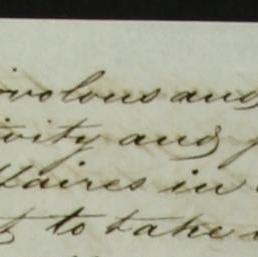 ivolous and
ivity and
ffaires in
to take